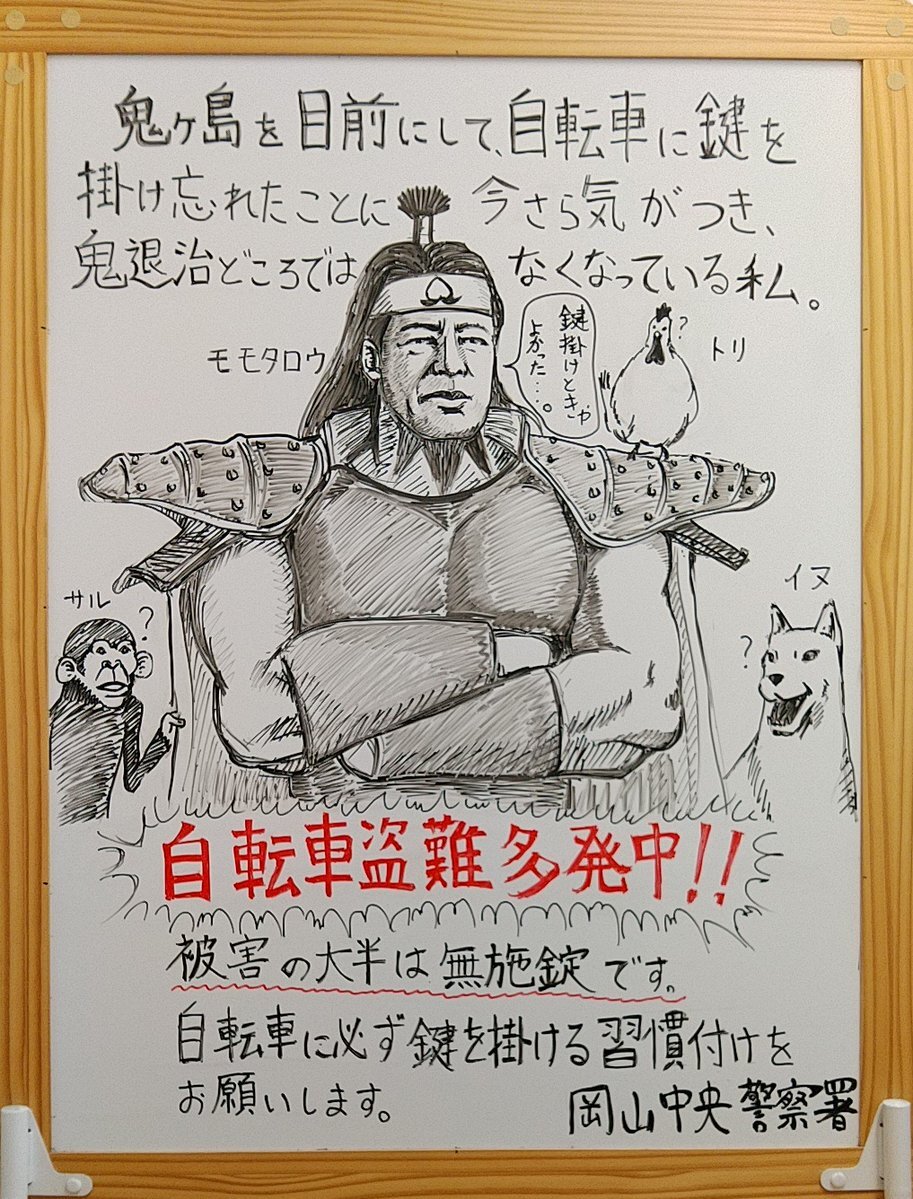 鬼ヶ島を目前にして、自転車に鍵を
掛け忘れたことに今さら気がつき、
鬼退治どころではなくなっている私。
モモタロウ
鍵掛けときゃ
よかった…。
?
トリ
サル
?
イヌ
?
自転車盗難多発中!!
被害の大半は無施錠です。
自転車に必ず鍵を掛ける習慣付けを
お願いします。
岡山中央警察署